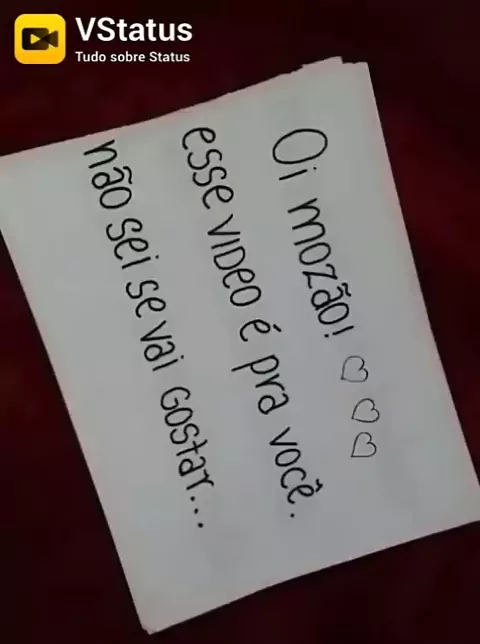 VStatus
Tudo sobre Status
Oi mozão! ♡ ♡ ♡
esse video é pra você.
não sei se vai gostar...